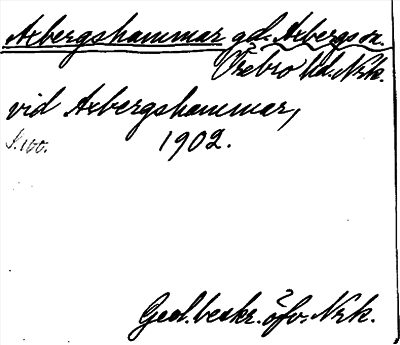 Axbergshammar gd. Axbergs sn.
Örebro hd. Nrk.
vid Axbergshammar,
S. 100. 1902.
Geol. beskr. öfv. Nrk.